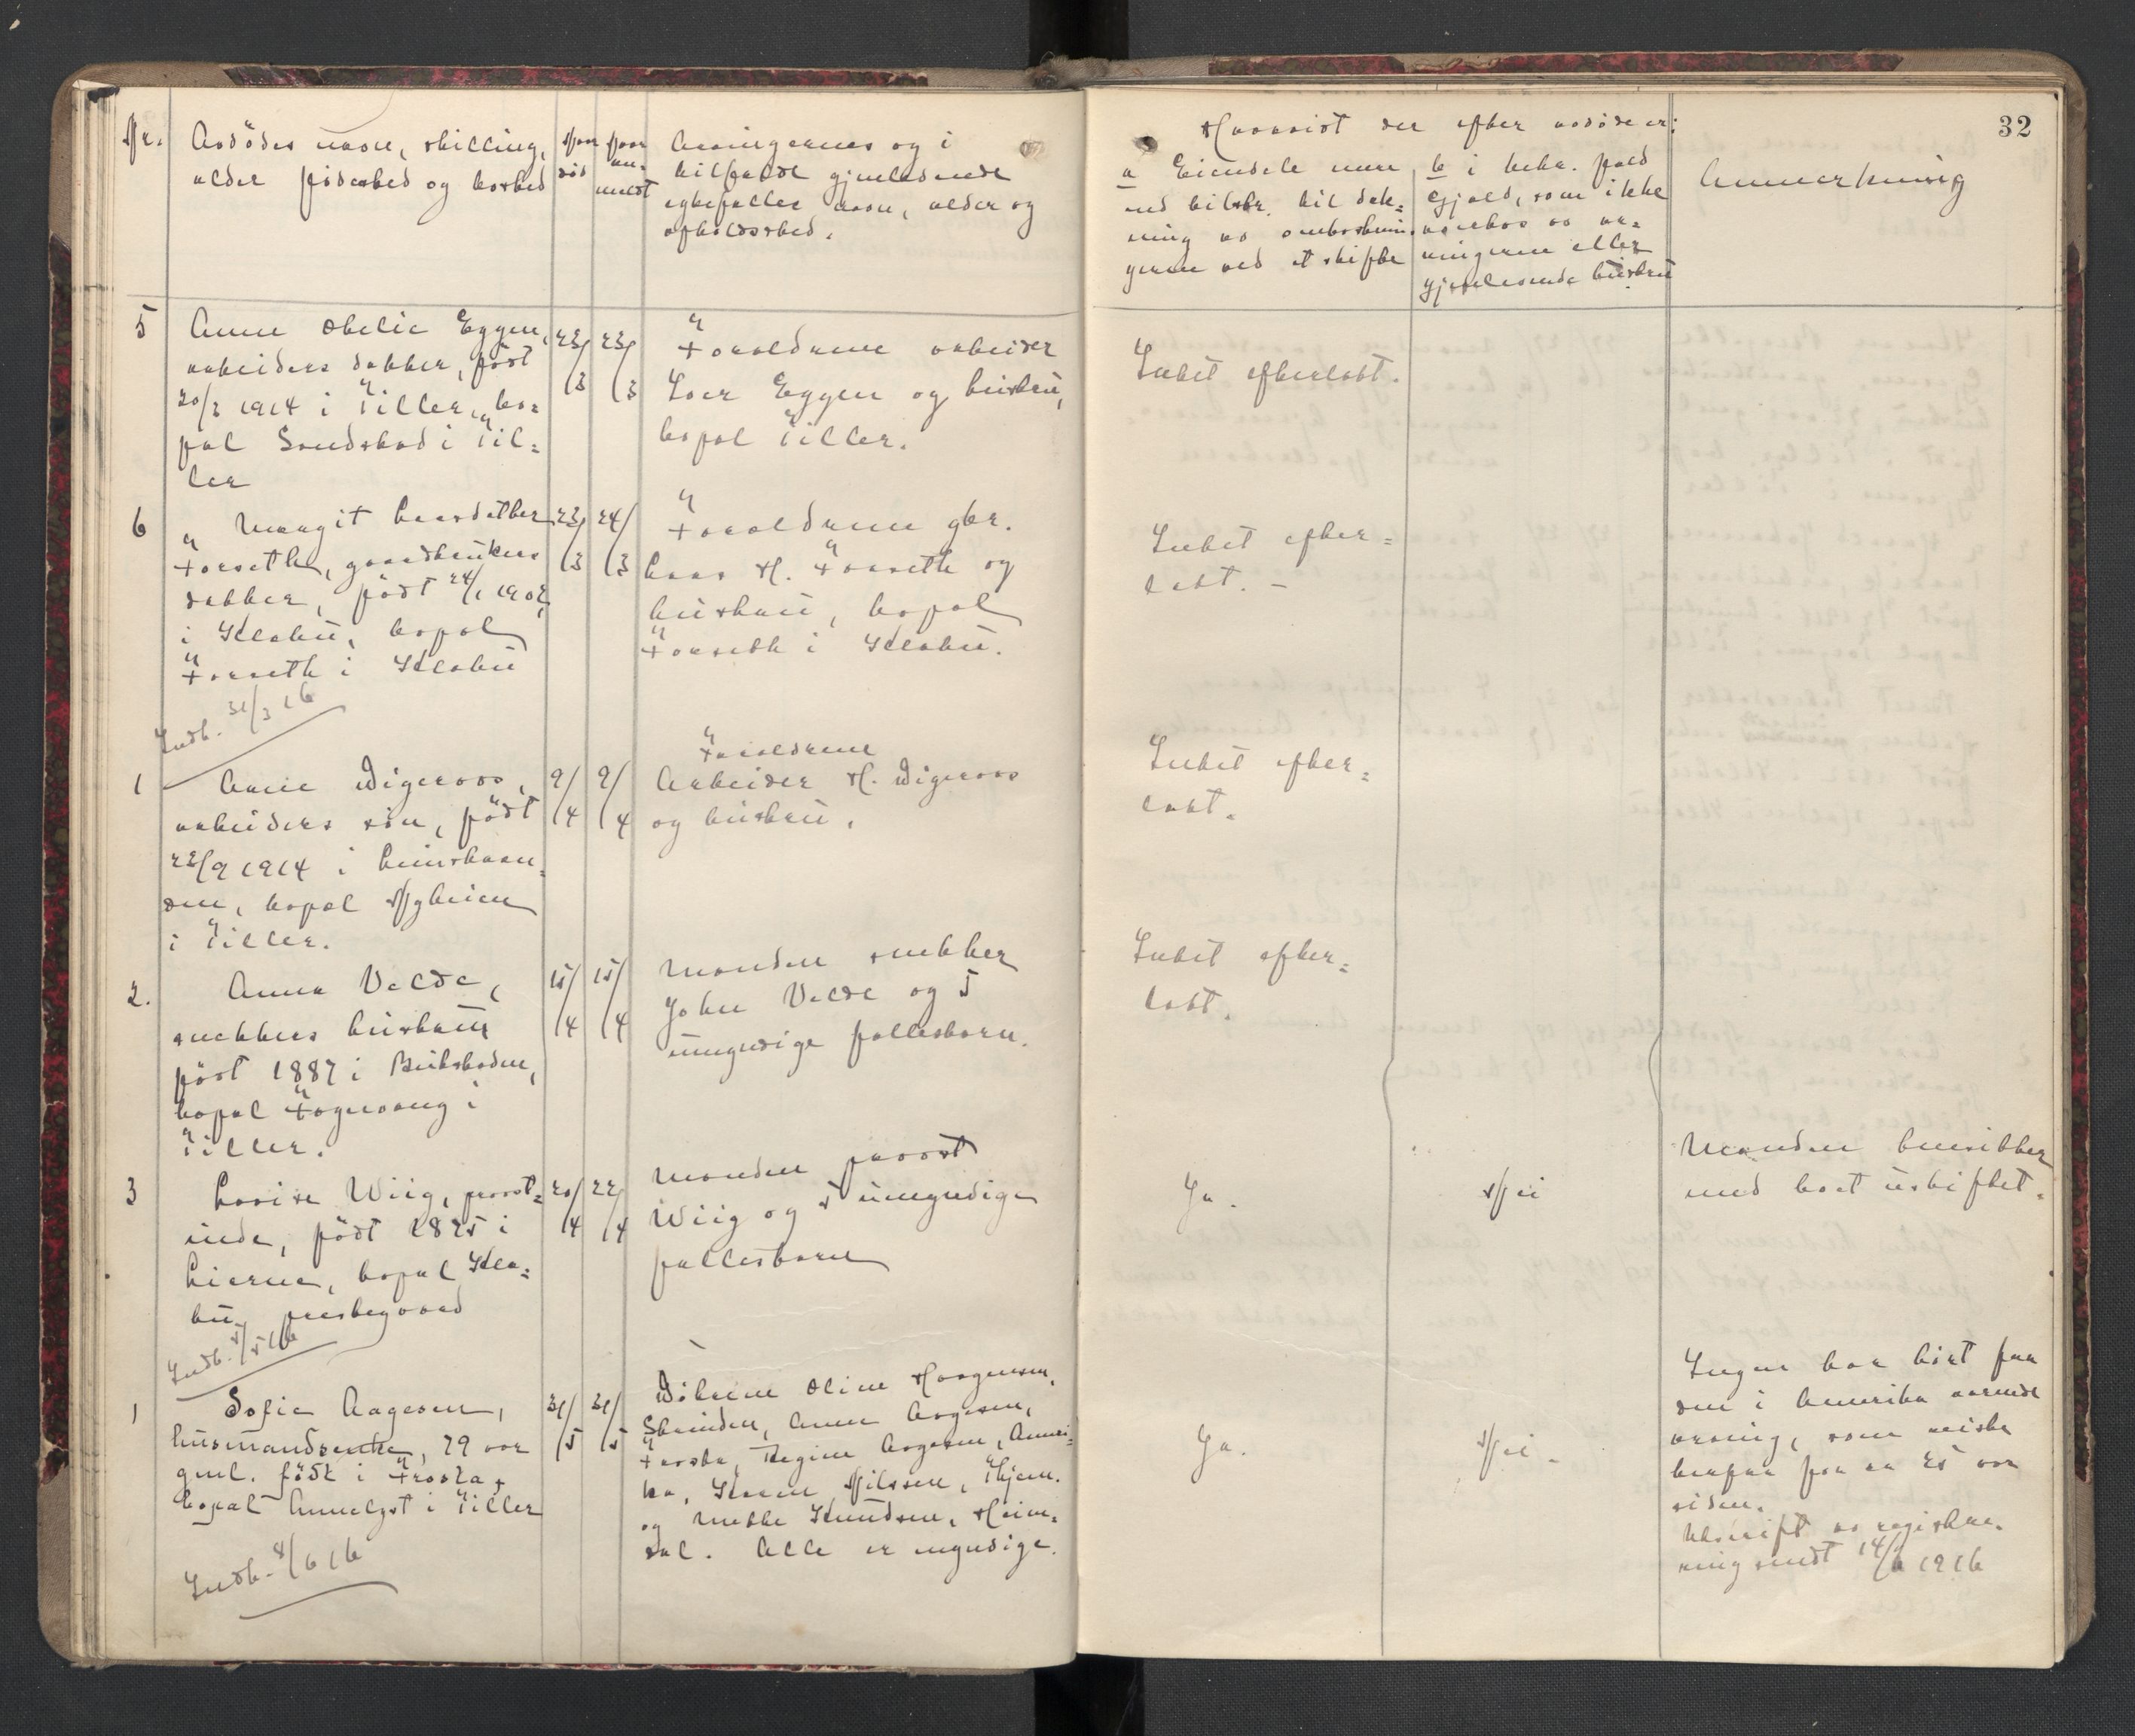 32
Nr.
Avdödes navn, stilling,
alder fødested og bosted
Naar
död
Naar
an-
meldt
Arvingernes og i
tilfælde gjenlevende
egtefælles navn, alder og
opholdssted.
Hvorvidt der efter avdöde er:
a Eiendele mere
end tilstr. til dæk=
ning av omkostnin-
gerne ved et skifte
b i bekr. fald
Gjæld, som ikke
vedtas av ar=
vingerne eller
gjenlevende hustru
Anmerkning
5
Anne Obelie Eggen,
arbeiders datter, født
20/2 1914 i Tiller, bo=
pæl Sandstad i Til=
ler
23/3
23/3
Forældrene arbeider
Loer Eggen og hustru,
bopæl Tiller.
Intet efterladt.
6
Margit
Forseth, gaardbrukers
datter, født 24/1 1902
i Klæbu, bopæl
Forseth i Klæbu
23/3
24/3
Forældrene gbr.
Lars H. Forseth og
hustru, bopæl
Forseth i Klæbu.
Intet efter=
latt. -
Indb. 31/3 16
1
Arne Digeraas,
arbeiders sön, født
22/9 1914 i Leinstran=
den, bopæl Nyheim
i Tiller.
9/4
9/4
Forældrene
Arbeider H. Digeraas
og hustru.
Intet efter=
latt.
2.
Anna Volde,
snekkers hustru
født 1887 i Beitstaden,
bopæl Fagervang i
Tiller.
15/4
15/4
Manden snekker
John Volde og 5
umyndige fællesbarn.
Intet efter=
latt.
3
Lovise Wiig, provst=
inde, født 1875 i
Lierne, bopæl Klæ=
bu prestegaard
20/4
22/4
Manden provst
Wiig og 5 umyndige
fællesbarn
Ja.
Nei
Manden hensitter
med boet uskiftet.
Indb. 5/5 16
1
Sofie Aagesen,
husmandsenke, 79 aar
gml. født i Frosta,
bopæl Annelyst i Tiller
31/5
31/5
Døtrene Oline Haagensen,
Strinden, Anne Aagesen,
Frosta, Regine Aagesen, Ameri=
ka, Karen Nilssen, Thjem.
og Mette Knudsen, Heim=
dal. Alle er myndige.
Ja.
Nei.
Ingen har hört fra
den i Amerika værende
arving, som reiste
herfra for ca 25 aar
siden.
Utskrift av registre-
ring sendt 14/6 1916
Indb. 8/6 16